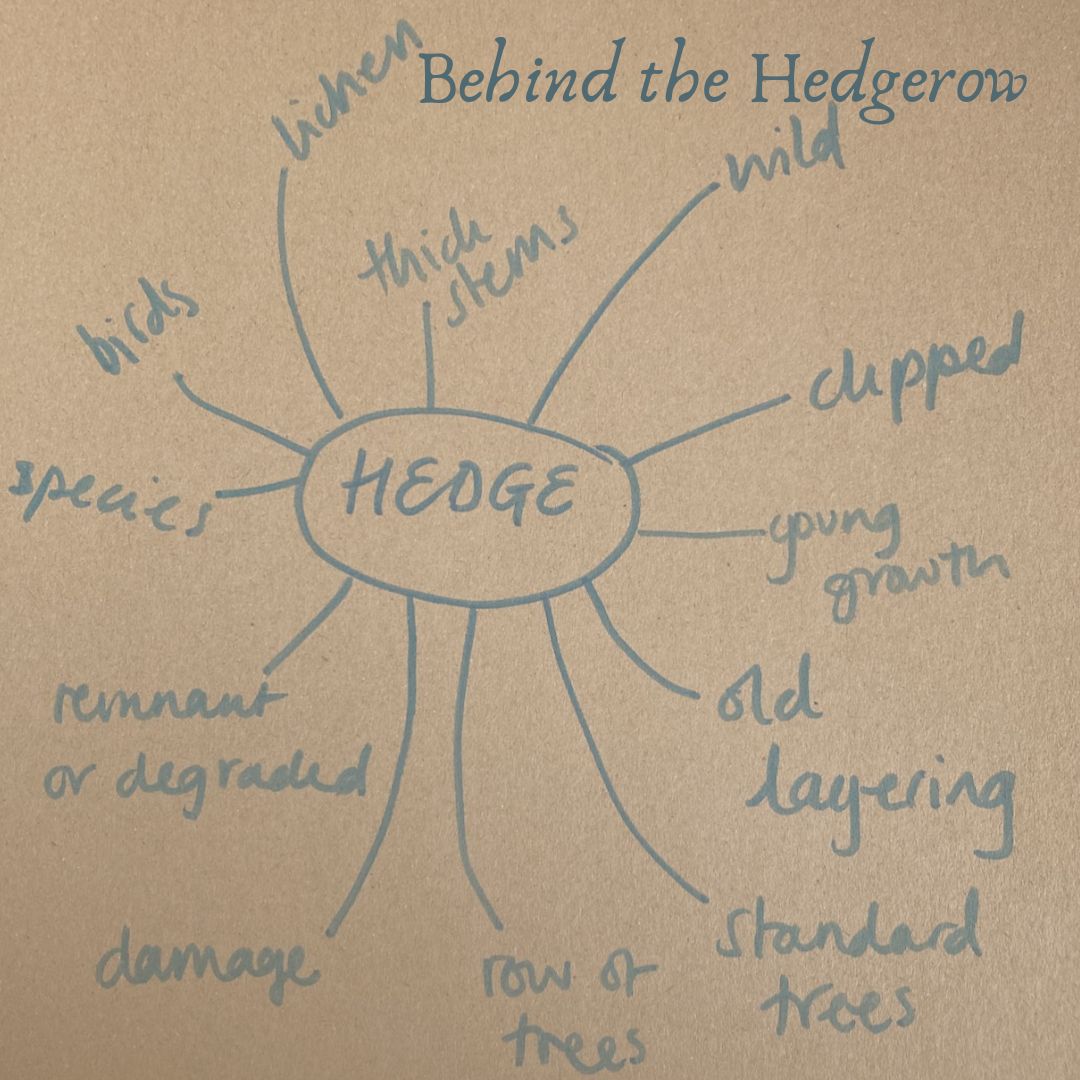 Behind the Hedgerow
lichen
wild
thick
stems
birds
clipped
HEDGE
species
young
growth
remnant
or degraded
old
layering
damage
row of
trees
standard
trees